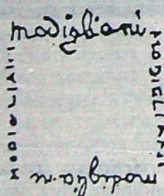 modigliani
MODIGLIANI
MODIGLIANI
modigliani